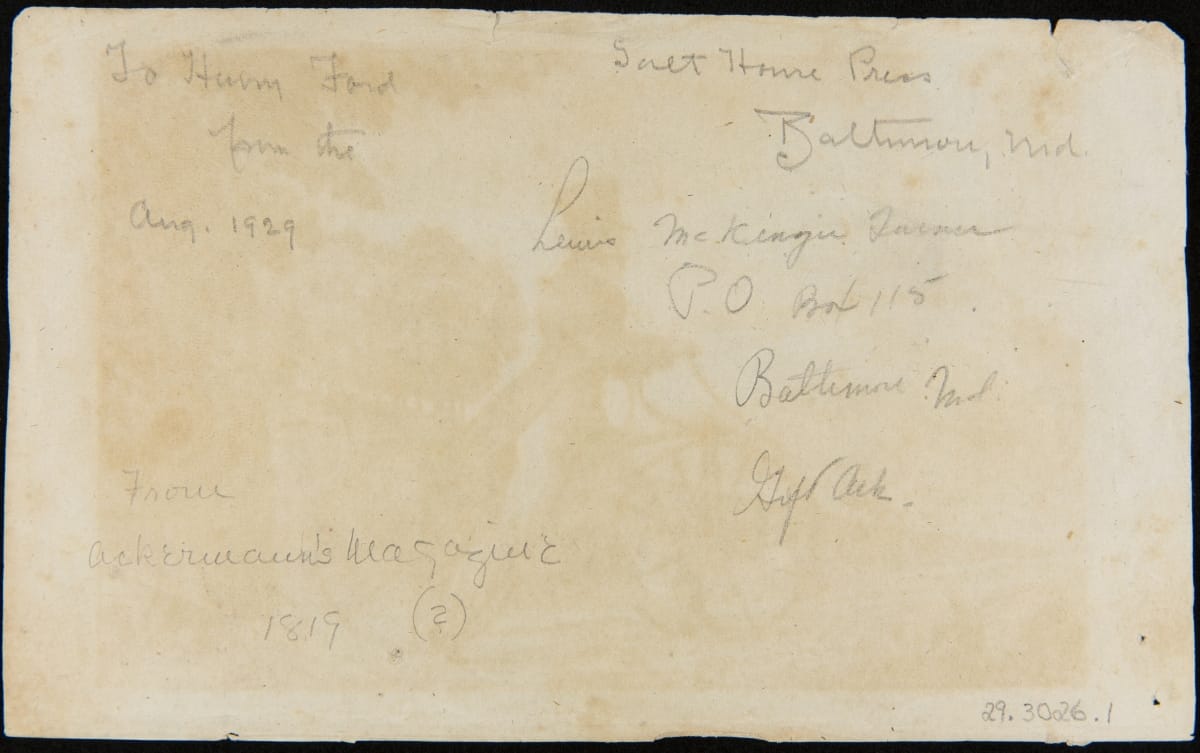 To Henry Ford
from the
Aug. 1929
Salt House Press
Baltimore, Md.
Lewis McKenzie Turner
P.O Box 115.
Baltimore Md.
Gift Ack.
From
Ackermann's Magazine
1819 (?)
29.3026.1